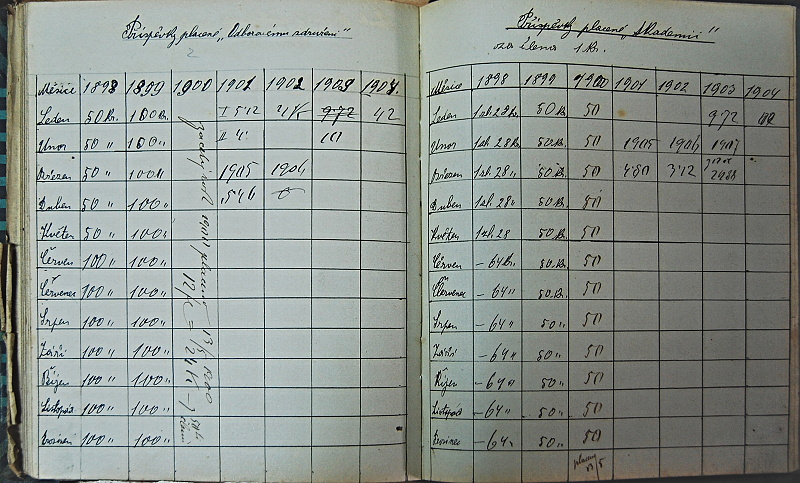 Příspěvky placené „Odborovému sdružení"
Měsíce 1898 1899 1900 1901 1902 1903 1904
Leden 50 Kr. 100 Kr. 972 42
Únor 50 " 100 "
Březen 50 " 100 " 1905 1906
Duben 50 " 100 " 546
Květen 50 " 100 "
Červen 100 " 100 "
Červenec 100 " 100 "
Srpen 100 " 100 "
Září 100 " 100 "
Říjen 100 " 100 "
Listopad 100 " 100 "
Prosinec 100 " 100 "
Příspěvky placené „Akademii"
za člena 1 Kr.
Měsíce 1898 1899 1900 1901 1902 1903 1904
Leden 1 zl. 28 Kr. 50 Kr. 50 972
Únor 1 zl. 28 Kr. 50 Kr. 50 1905 1906 1907
Březen 1 zl. 28 " 50 Kr. 50 480 312
Duben 1 zl. 28 " 50 Kr. 50
Květen 1 zl. 28 50 Kr. 50
Červen – 64 Kr. 50 Kr. 50
Červenec – 64 " 50 Kr. 50
Srpen – 64 " 50 " 50
Září – 64 " 50 " 50
Říjen – 64 " 50 " 50
Listopad – 64 " 50 " 50
Prosinec – 64 " 50 " 50